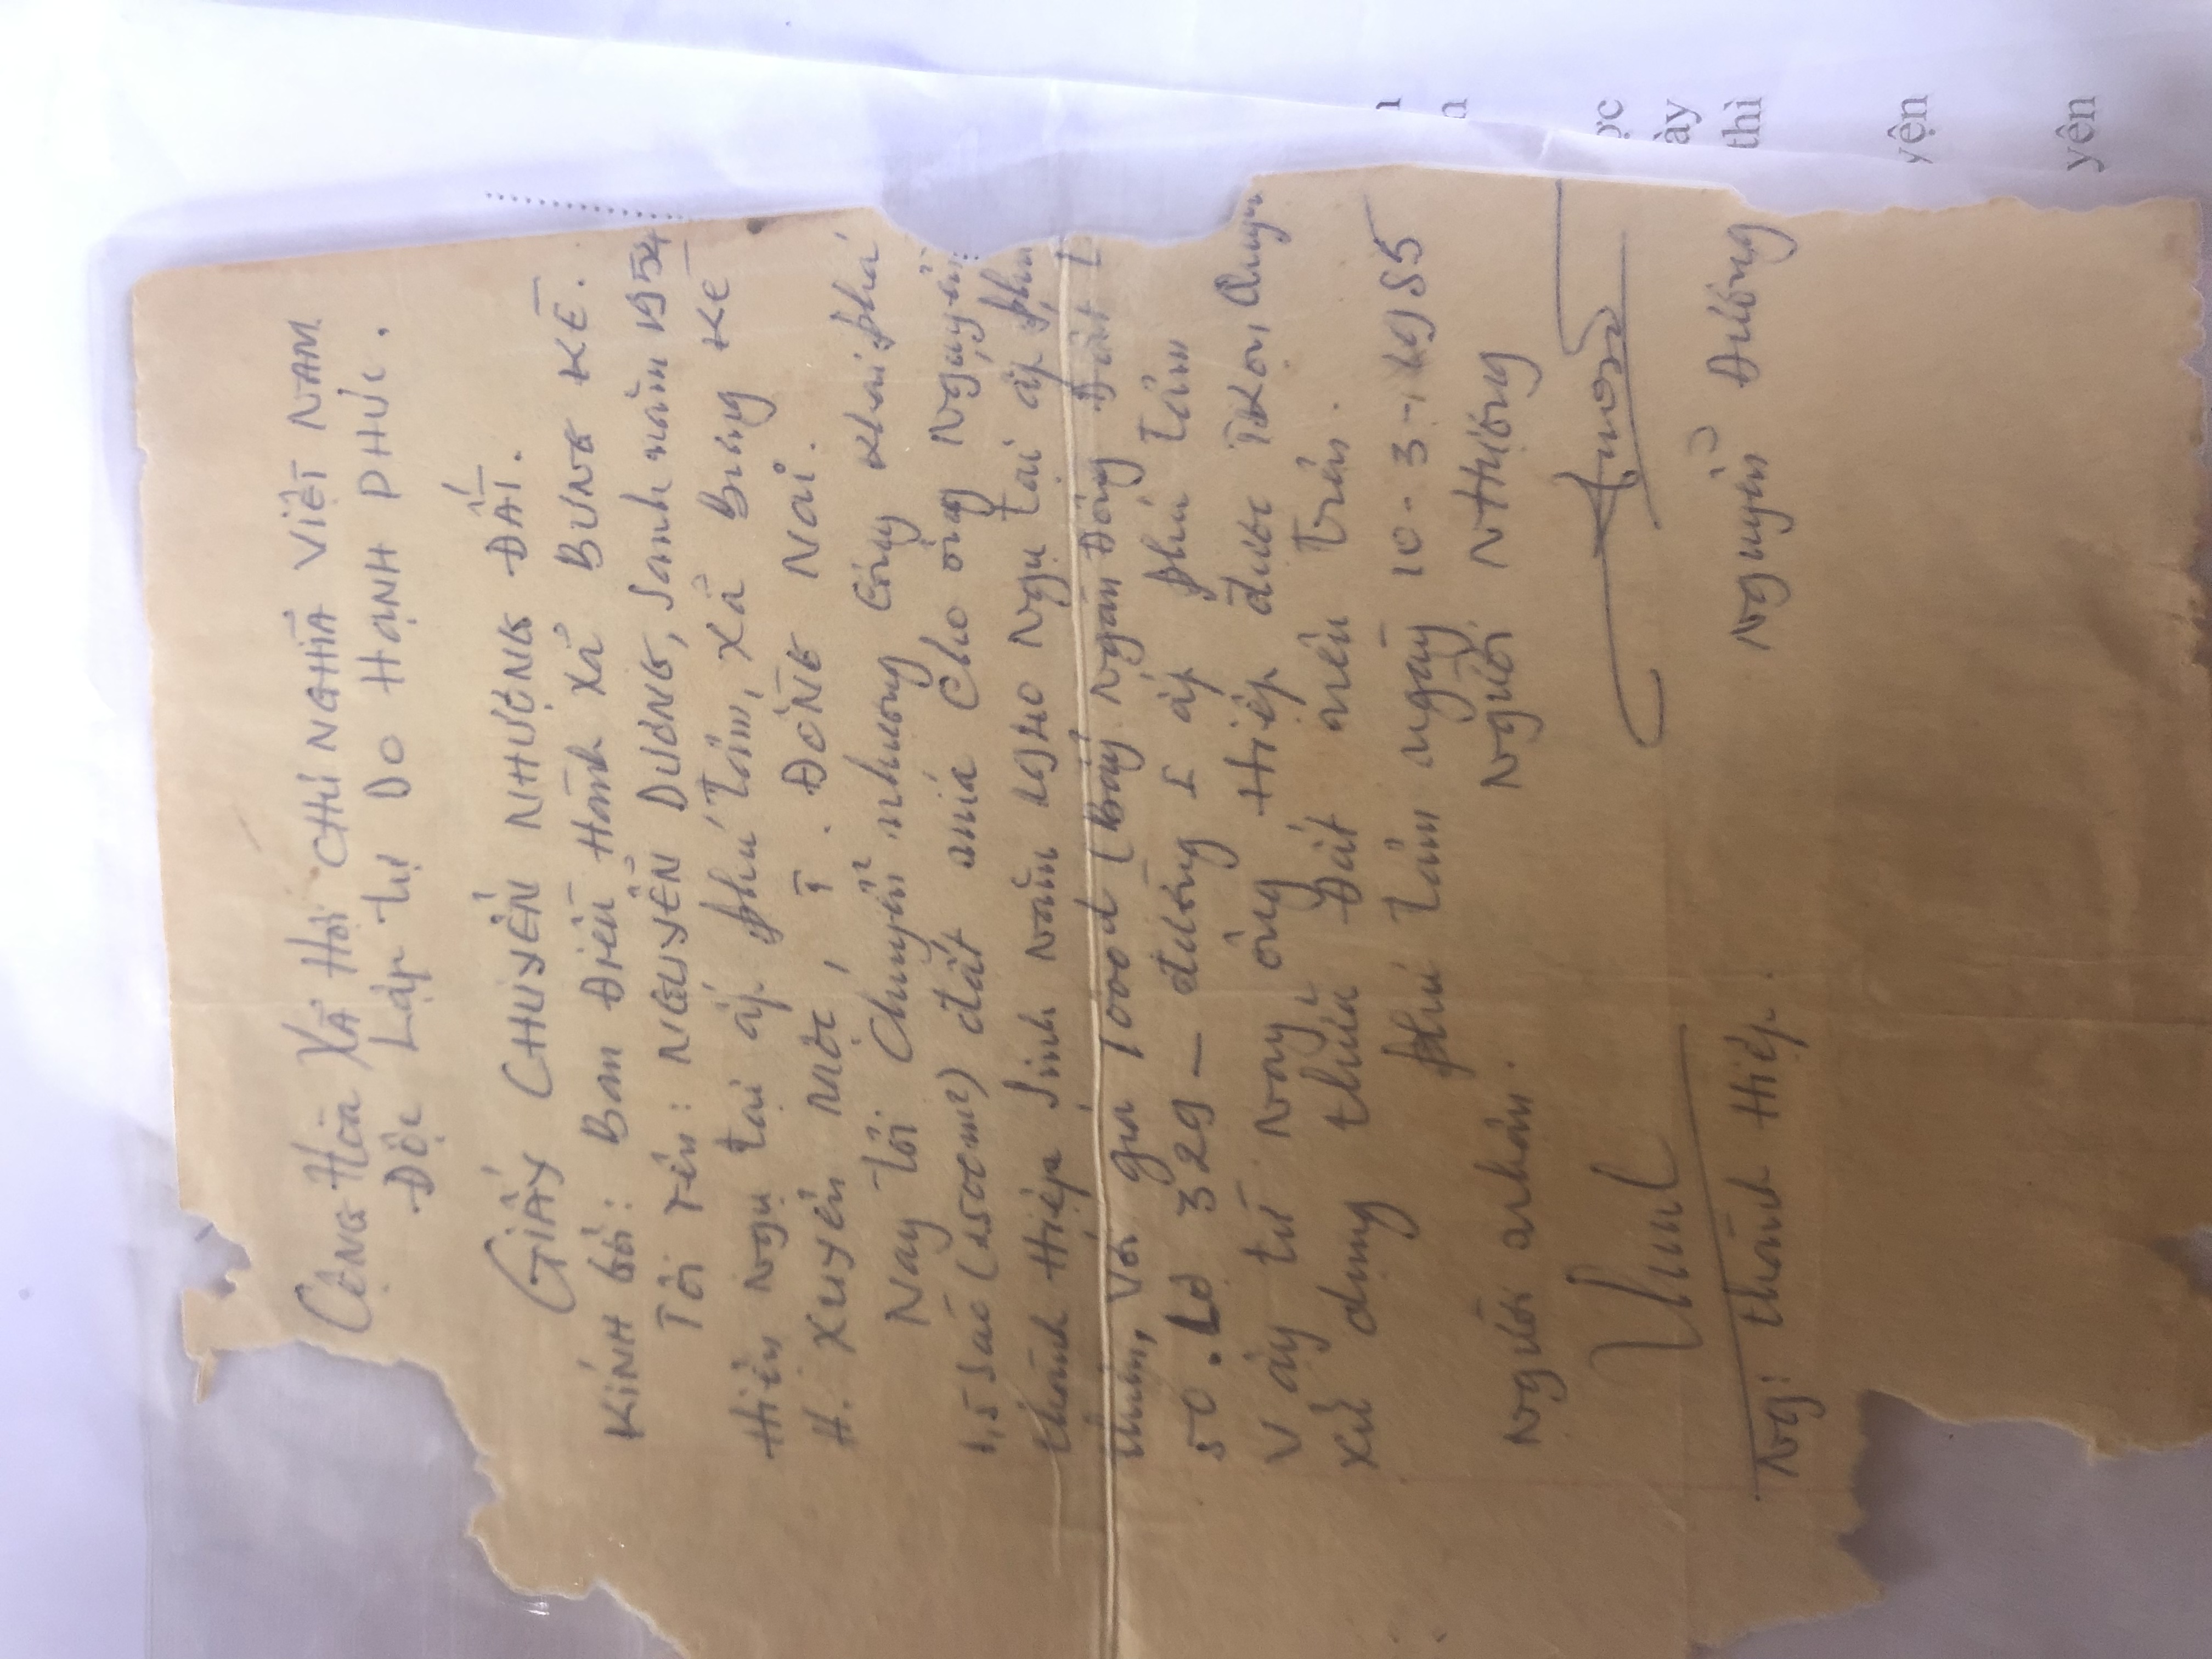 CỘNG HÒA XÃ HỘI CHỦ NGHĨA VIỆT NAM
ĐỘC LẬP TỰ DO HẠNH PHÚC.
GIẤY CHUYỂN NHƯỢNG ĐẤT.
KÍNH GỞI: Ban Điều Hành Xã BƯNG KỀ.
Tôi Tên: NGUYỄN DƯƠNG, Sanh năm 1954
Hiện Ngụ tại ấp phú Tâm, Xã Bưng Kề
H. Xuyên Mộc, T. ĐỒNG NAI.
Nay tôi chuyển nhượng công khai phá
1,5 Sào (1500m²) đất mía cho ông Nguyễn
thành Hiệp Sinh năm 1940 Ngụ tại ấp phú
Với giá 7000đ (bảy Ngàn Đồng Đất
50. Lô 329 - đường 5 ấp phú Tâm
Vậy từ Nay ông Hiệp được Toàn Quyền
Xử dụng thửa Đất nêu Trên.
phú Tâm ngày 10-3-1985
Người nhận. Người NHượng
Ng: thành Hiệp. Nguyễn Dương
ợc
ày
thì
yện
yên